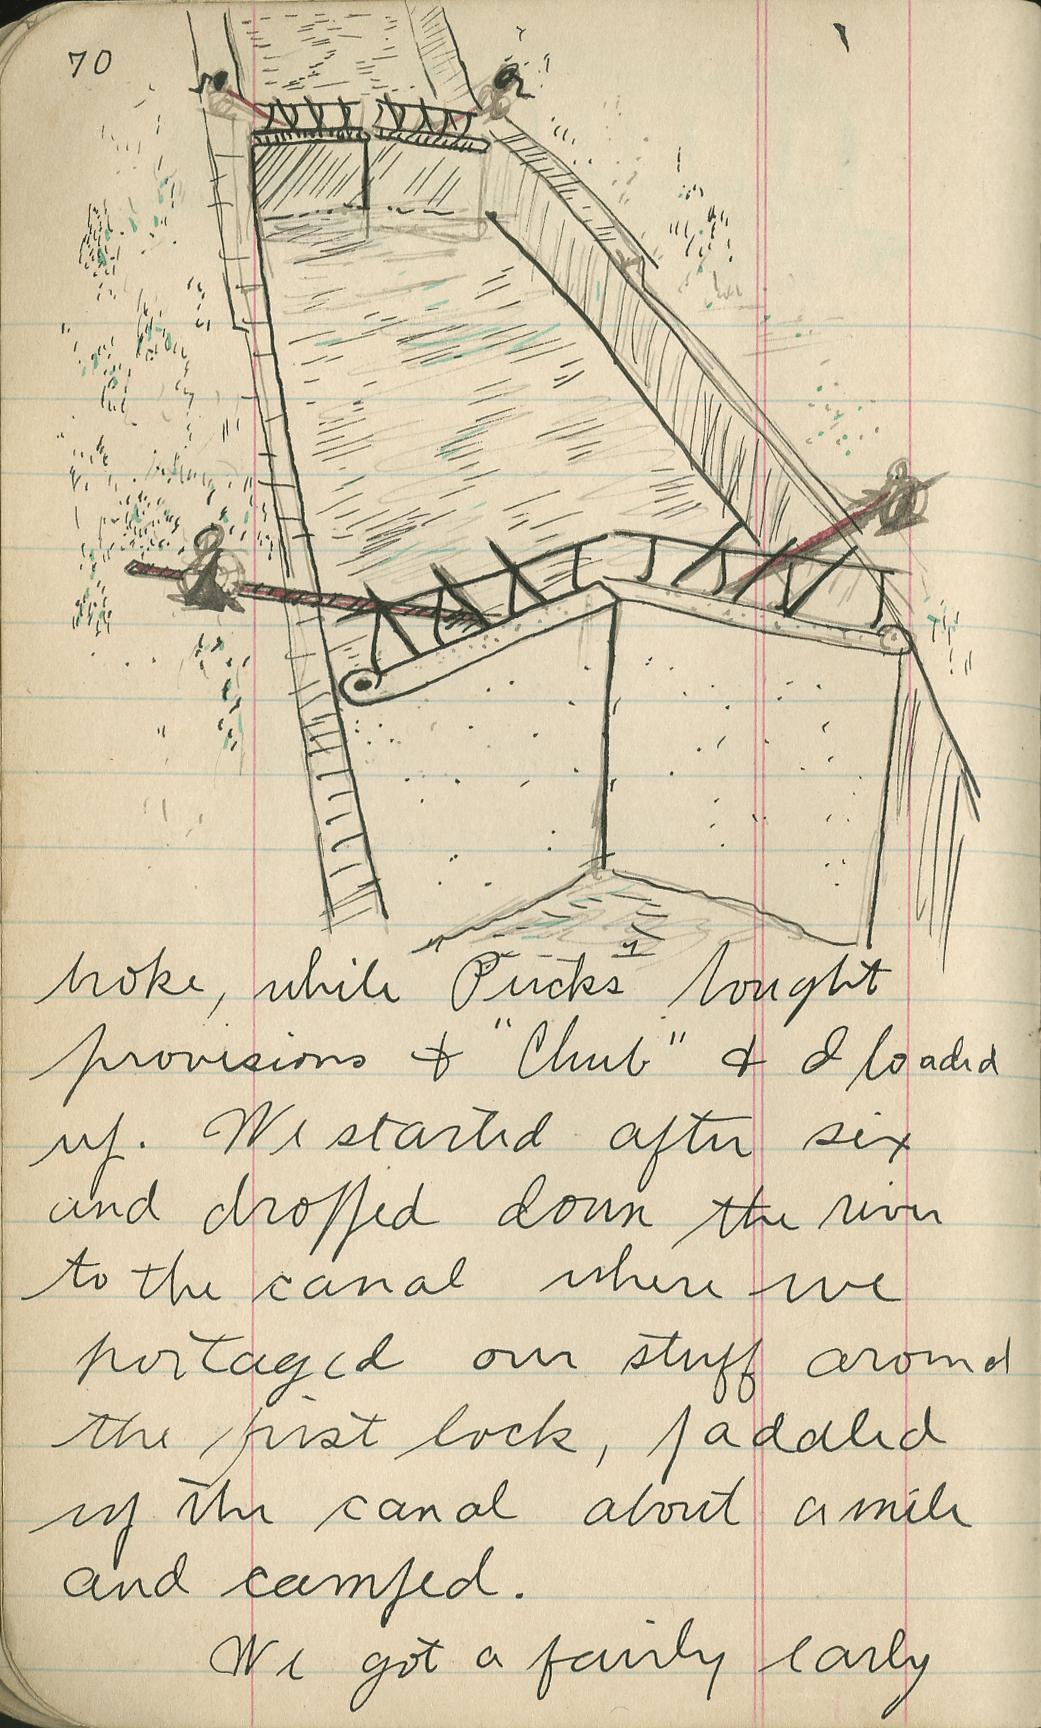 70
broke, while Pucks bought
provisions & "Chub" & I loaded
up. We started after six
and dropped down the river
to the canal where we
portaged our stuff around
the first lock, paddled
up the canal about a mile
and camped.
We got a fairly early